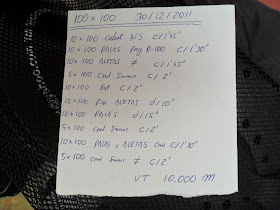 100 x 100 30/12/2011
10 x 100 Calent NS C/1'45"
10 x 100 PALAS Prog R-100 C/1'30"
10 x 100 ALETAS ≠ C/1'45"
5 x 100 Cool Suave C/2'
10 x 100 Est C/2'
10 x 100 ALETAS d/10"
10 x 100 PALAS d/15"
5 x 100 Cool Suave C/2'
10 x 100 PALAS y ALETAS C/1'30"
5 x 100 Cool Suave ≠ C/2'
VT 10.000 m